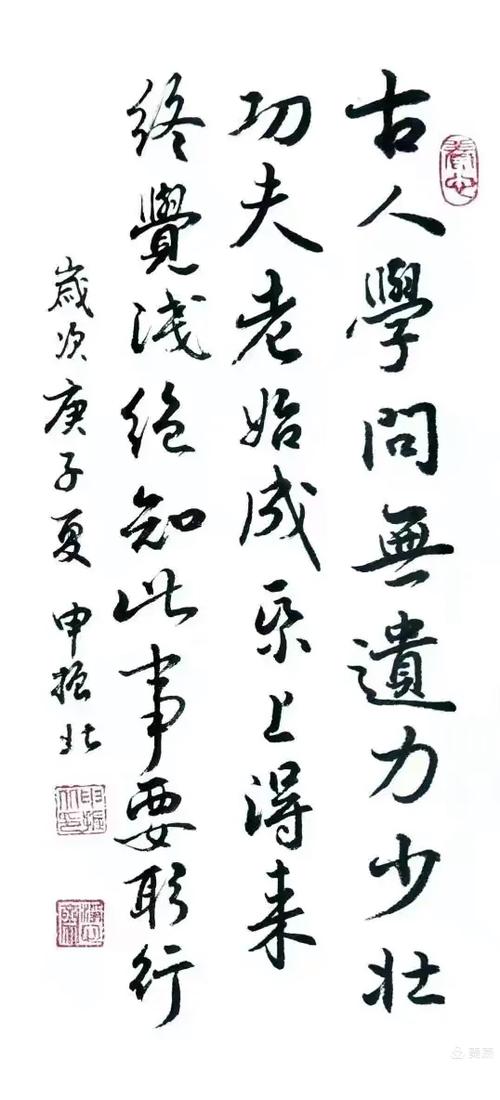 養心
古人學問無遺力少壮
功夫老始成帋上得来
終覺浅絶知此事要躬行
歲次庚子夏 申振北